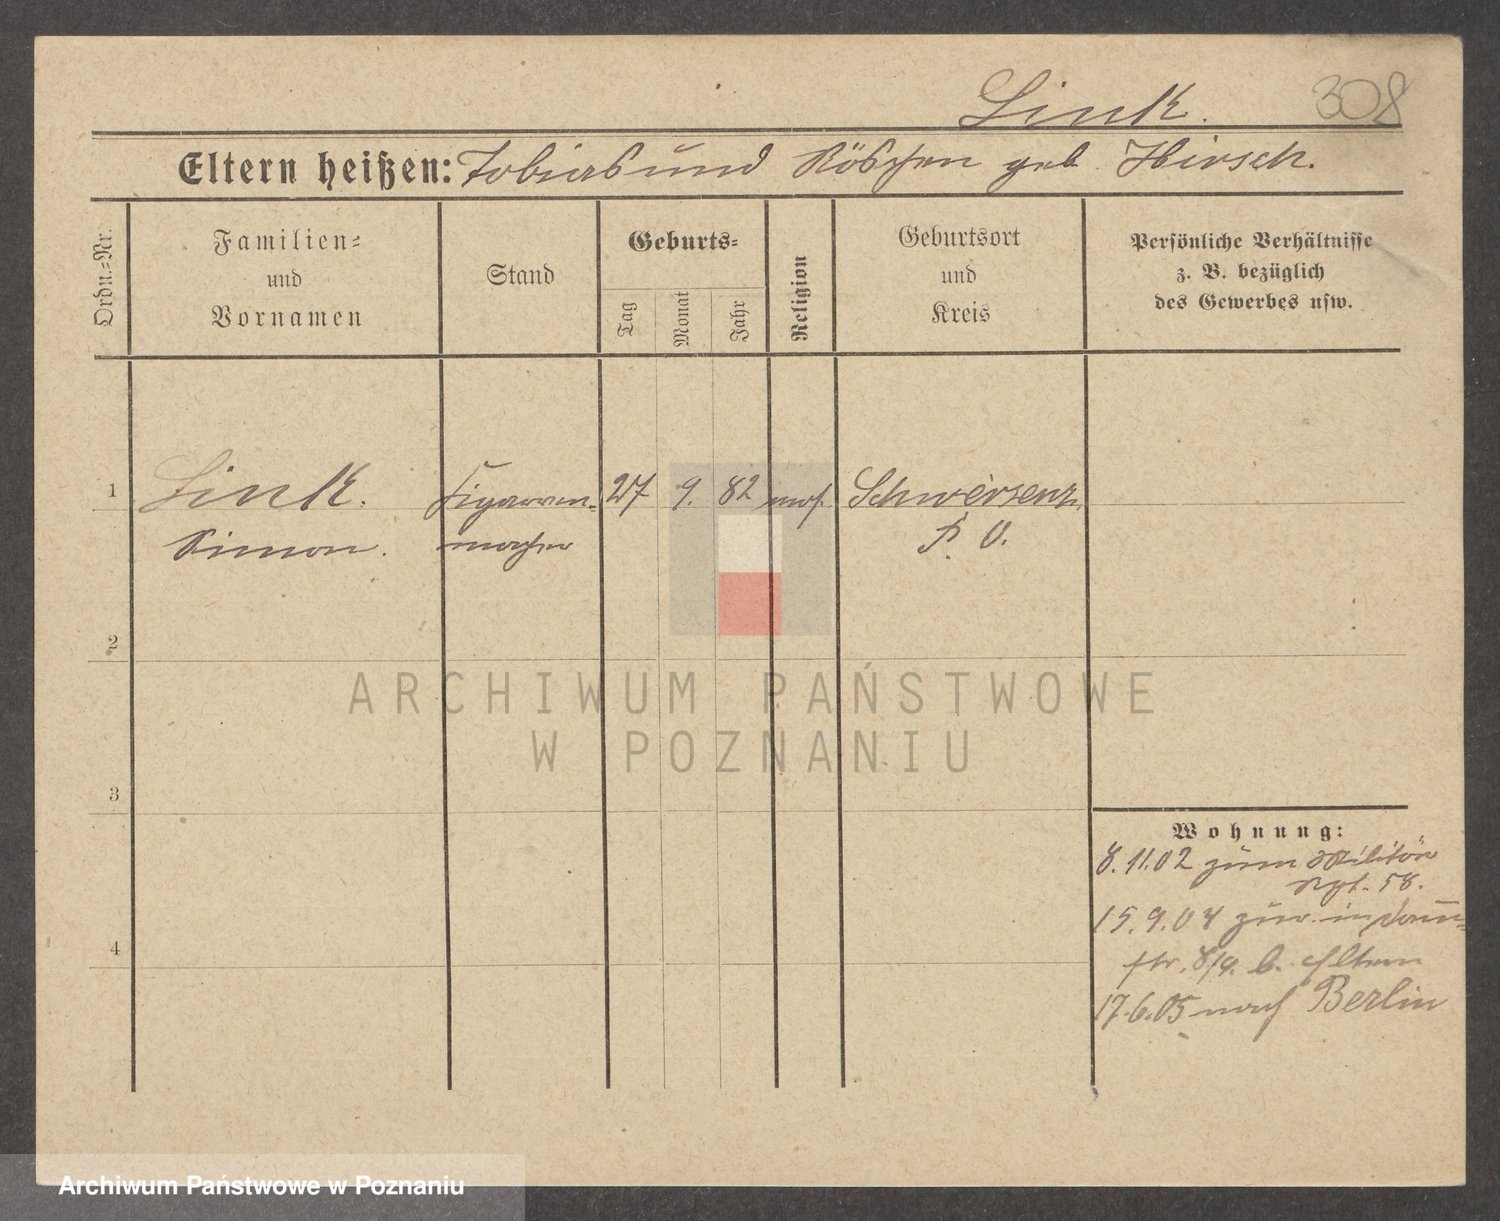 Link. 308
Eltern heißen: Tobias und Röschen geb. Hirsch.
Ordn.=Nr.
Familien=
und
Vornamen
Stand
Geburts=
Tag
Monat
Jahr
Religion
Geburtsort
und
Kreis
Persönliche Verhältnisse
z. B. bezüglich
des Gewerbes usw.
1 Link. Zigarren= 27 9. 82 mos. Schwersenz
Simon. macher P. O.
2
3
4
Wohnung:
8.11.02 zum Militär
Rgt. 58.
15.9.04 zur. in
str. 8/9. b. Eltern
17.6.05 nach Berlin
ARCHIWUM PAŃSTWOWE
W POZNANIU
Archiwum Państwowe w Poznaniu